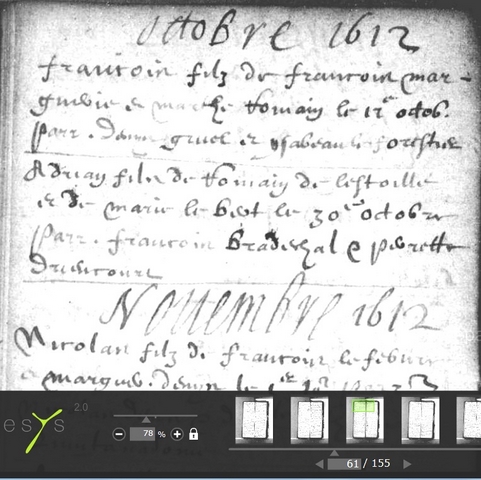 octobre 1612
francois filz de francois mar-
guerie et marthe tomain le 12e octob.
parr. denis gruel et ysabeau le forestier
Adrian filz de tomain de lestoille
et de marie le bert le 30e octobre
parr. francois Bradechal e perette
Drieucourt
Novembre 1612
Nicolas filz de francois lefebure
e margue. denis le 1er
esys 2.0
78 %
61 / 155